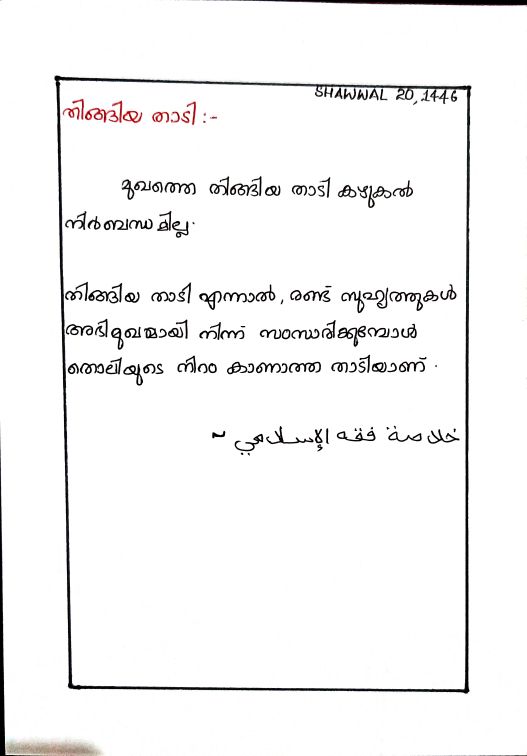 SHAWWAL 20, 1446
തിങ്ങിയ താടി :-
മുഖത്തെ തിങ്ങിയ താടി കഴുകൽ
നിർബന്ധമില്ല.
തിങ്ങിയ താടി എന്നാൽ, രണ്ട് സുഹൃത്തുകൾ
അഭിമുഖമായി നിന്ന് സംസാരിക്കുമ്പോൾ
തൊലിയുടെ നിറം കാണാത്ത താടിയാണ്.
خلاصة فقه الإسلامي ~